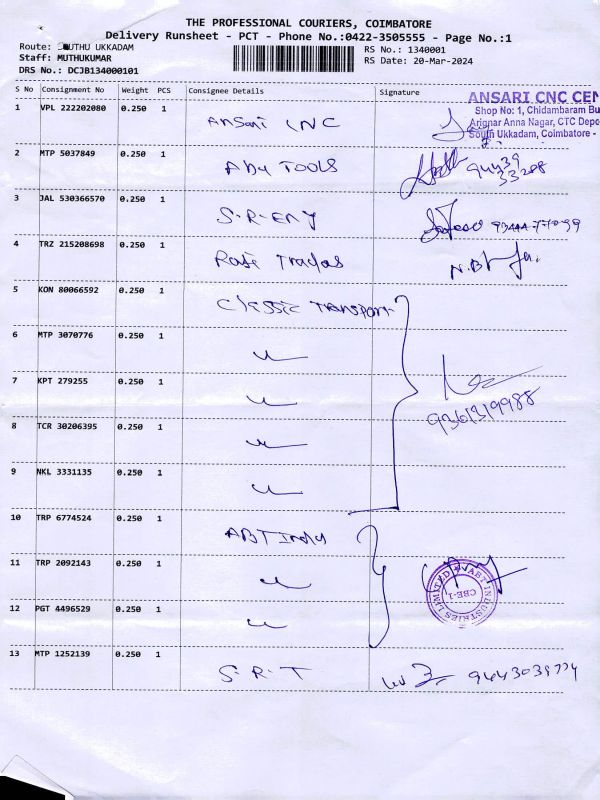 THE PROFESSIONAL COURIERS, COIMBATORE
Delivery Runsheet - PCT - Phone No.:0422-3505555 - Page No.:1
Route: MUTHU UKKADAM
RS No.: 1340001
Staff: MUTHUKUMAR
RS Date: 20-Mar-2024
DRS No.: DCJB134000101
S No Consignment No Weight PCS Consignee Details Signature
ANSARI CNC CEN
1 VPL 222202080 0.250 1 Ansari CNC
Shop No: 1, Chidambaram Bu
Arignar Anna Nagar, CTC Depo
South Ukkadam, Coimbatore -
2 MTP 5037849 0.250 1 Abu TOOLS
3 JAL 530366570 0.250 1 S.R. ENY
4 TRZ 215208698 0.250 1 Rafi Trades
5 KON 80066592 0.250 1 Classic Transport
6 MTP 3070776 0.250 1
7 KPT 279255 0.250 1
9361319988
8 TCR 30206395 0.250 1
9 NKL 3331135 0.250 1
10 TRP 6774524 0.250 1 ABT Indu
11 TRP 2092143 0.250 1
ABT INDUSTRIES LIMITED
CBE-1
12 PGT 4496529 0.250 1
13 MTP 1252139 0.250 1 S.R.T